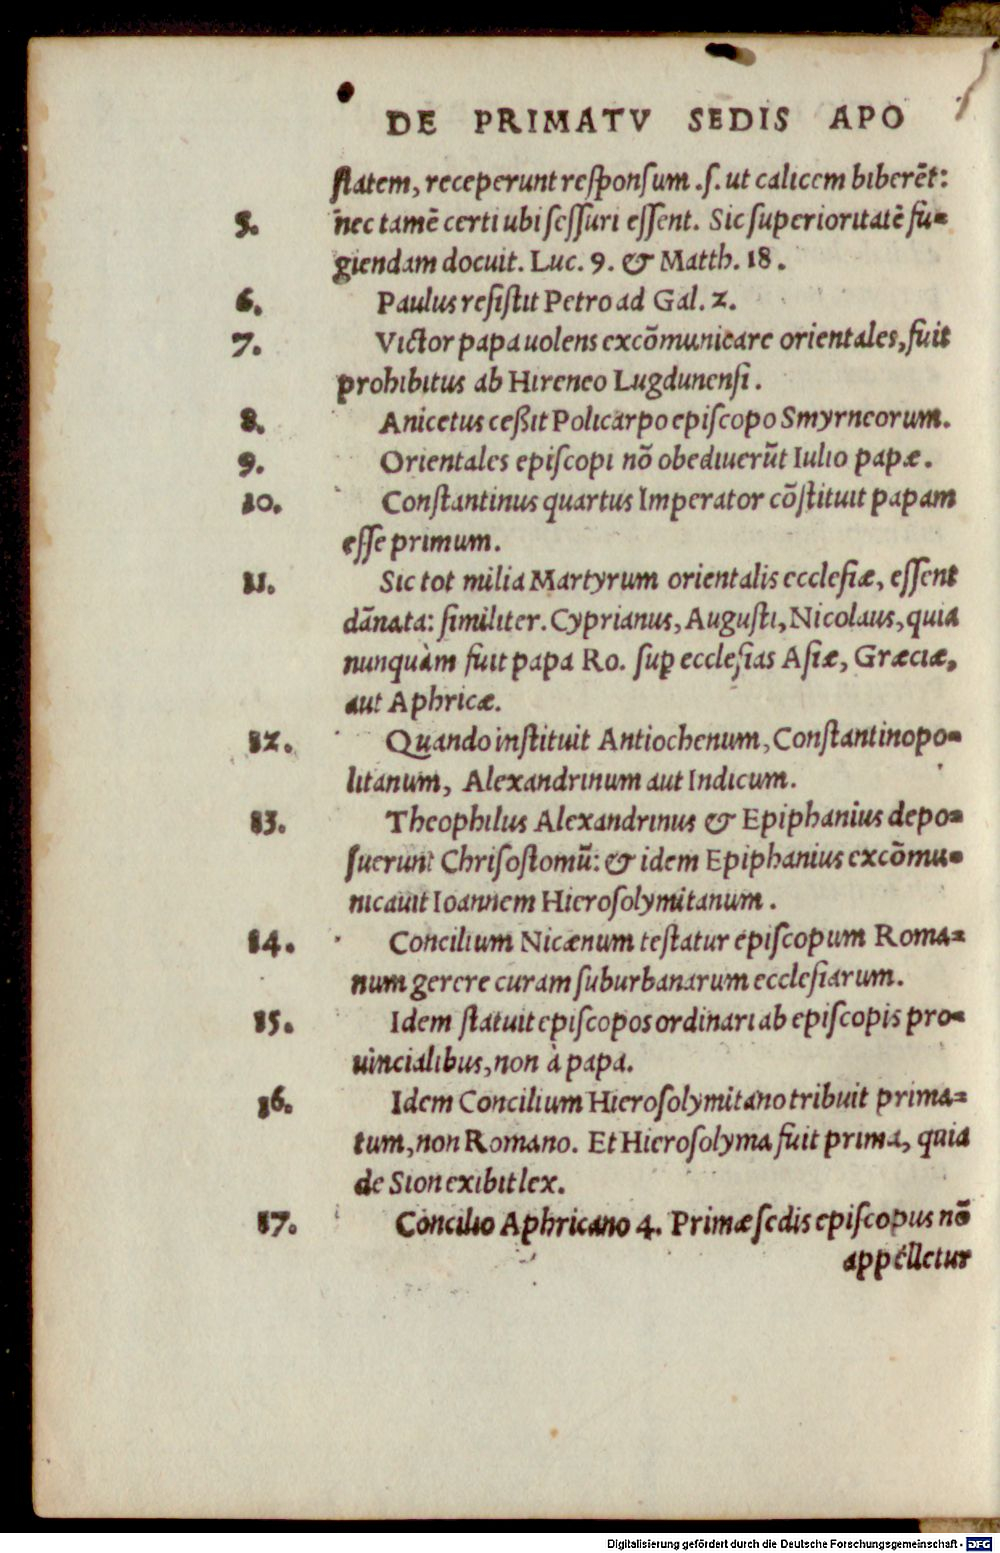 DE PRIMATV SEDIS APO
ſtatem, receperunt reſponſum .ſ. ut calicem biberēt:
5. nec tamē certi ubi ſeſſuri eſſent. Sic ſuperioritatē fu=
giendam docuit. Luc. 9. & Matth. 18.
6. Paulus reſiſtit Petro ad Gal. 2.
7. Victor papa uolens excōmunicare orientales, fuit
prohibitus ab Hireneo Lugdunenſi.
8. Anicetus ceßit Policarpo epiſcopo Smyrneorum.
9. Orientales epiſcopi nō obediuerūt Iulio papæ.
10. Conſtantinus quartus Imperator cōſtituit papam
eſſe primum.
11. Sic tot milia Martyrum orientalis eccleſiæ, eſſent
dānata: ſimiliter. Cyprianus, Auguſti, Nicolaus, quia
nunquàm fuit papa Ro. ſup eccleſias Aſiæ, Græciæ,
aut Aphricæ.
12. Quando inſtituit Antiochenum, Conſtantinopo=
litanum, Alexandrinum aut Indicum.
13. Theophilus Alexandrinus & Epiphanius depo=
ſuerunt Chriſoſtomū: & idem Epiphanius excōmu=
nicauit Ioannem Hieroſolymitanum.
14. Concilium Nicænum teſtatur epiſcopum Roma=
num gerere curam ſuburbanarum eccleſiarum.
15. Idem ſtatuit epiſcopos ordinari ab epiſcopis pro=
uincialibus, non à papa.
16. Idem Concilium Hieroſolymitano tribuit prima=
tum, non Romano. Et Hieroſolyma fuit prima, quia
de Sion exibit lex.
17. Concilio Aphricano 4. Primæ ſedis epiſcopus nō
appelletur
Digitalisierung gefördert durch die Deutsche Forschungsgemeinschaft - DFG